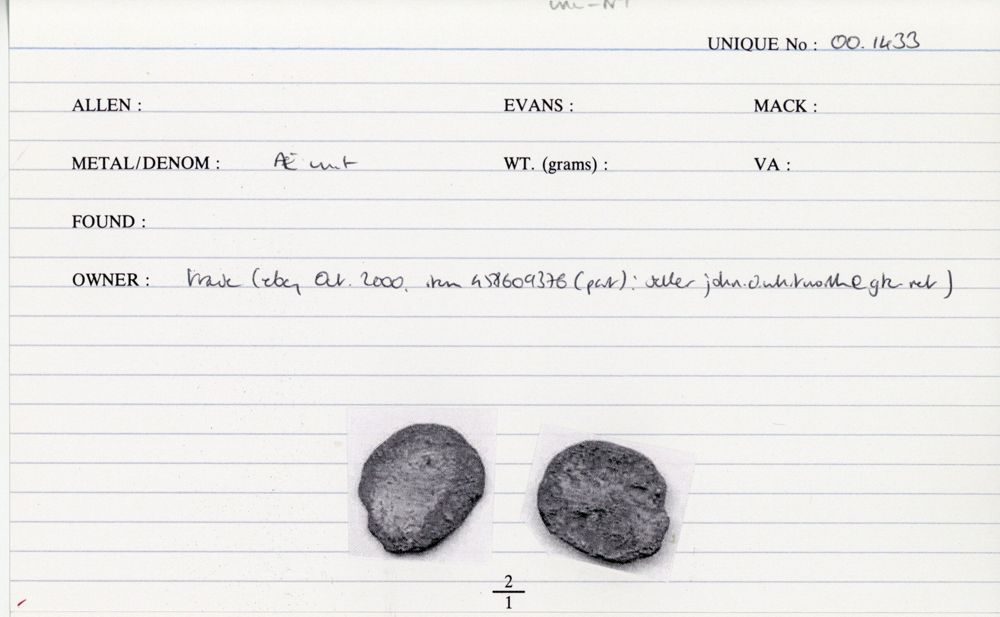 UNIQUE No : 00.1433
ALLEN : EVANS : MACK :
METAL/DENOM : Æ unit WT. (grams) : VA :
FOUND :
OWNER : Trade (ebay Oct. 2000, item 458609376 (part): seller
2
1